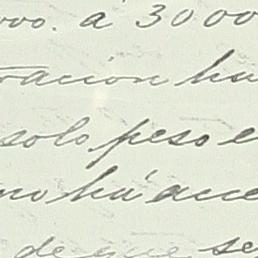 000. á 30000
ración ha
solo peso e
no há acce
de que se